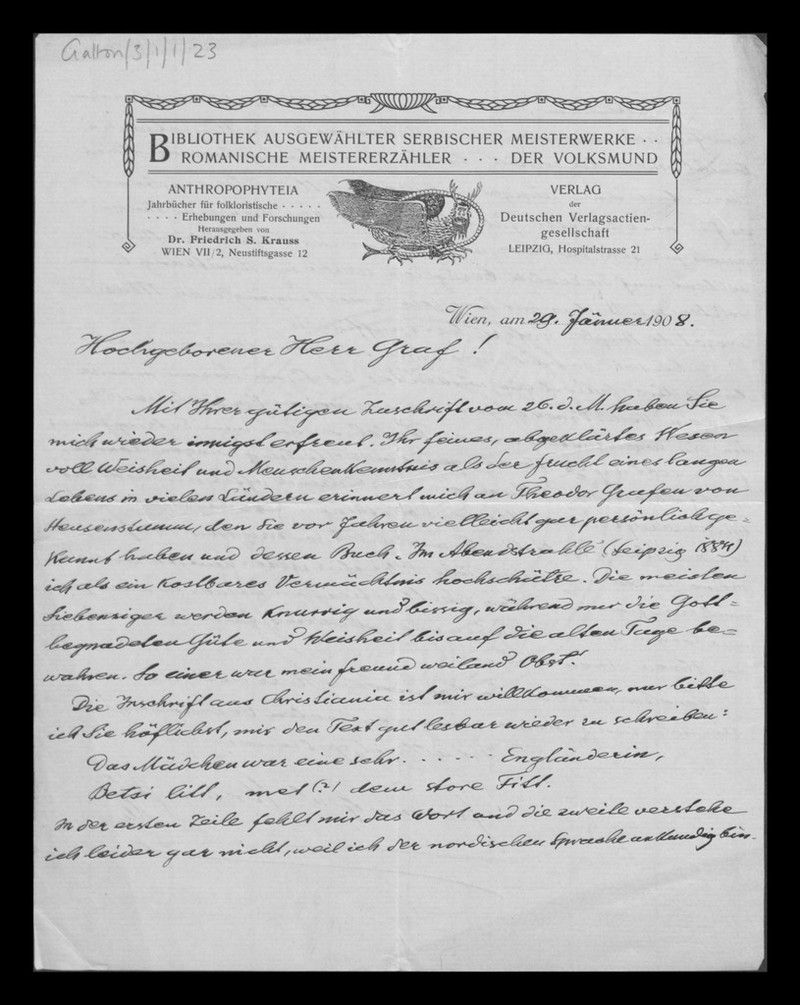 Galton/3/1/1/23
BIBLIOTHEK AUSGEWÄHLTER SERBISCHER MEISTERWERKE · ·
ROMANISCHE MEISTERERZÄHLER · · · DER VOLKSMUND
ANTHROPOPHYTEIA
Jahrbücher für folkloristische · · · · ·
· · · · Erhebungen und Forschungen
Herausgegeben von
Dr. Friedrich S. Krauss
WIEN VII/2, Neustiftsgasse 12
VERLAG
der
Deutschen Verlagsactien-
gesellschaft
LEIPZIG, Hospitalstrasse 21
Wien, am 29. Jänner 1908.
Hochgeborener Herr Graf!
Mit Ihrer gütigen Zuschrift vom 26. d. M. haben Sie
mich wieder innigst erfreut. Ihr feines, abgeklärtes Wesen
voll Weisheit und Menschenkenntnis als der Frucht eines langen
Lebens in vielen Ländern erinnert mich an Theodor Grafen von
Heusenstamm, den Sie vor Jahren vielleicht gar persönlich ge-
kannt haben und dessen Buch „Im Abendstrahle" (Leipzig
ich als ein kostbares Vermächtnis hochschätze. Die meisten
Siebenziger werden knurrig und bissig, während nur die Gott-
begnadeten Güte und Weisheit bis auf die alten Tage be-
wahren. So einer war mein Freund weiland Obst.
Die Inschrift aus Christiania ist mir willkommen, nur bitte
ich Sie höflichst, mir den Text gut lesbar wieder zu schreiben:
Das Mädchen war eine sehr . . . . . . Engländerin,
Betsi litl, met (?) dem store Fitl.
In der ersten Zeile fehlt mir das Wort und die zweite verstehe
ich leider gar nicht, weil ich der nordischen Sprache unkundig bin.